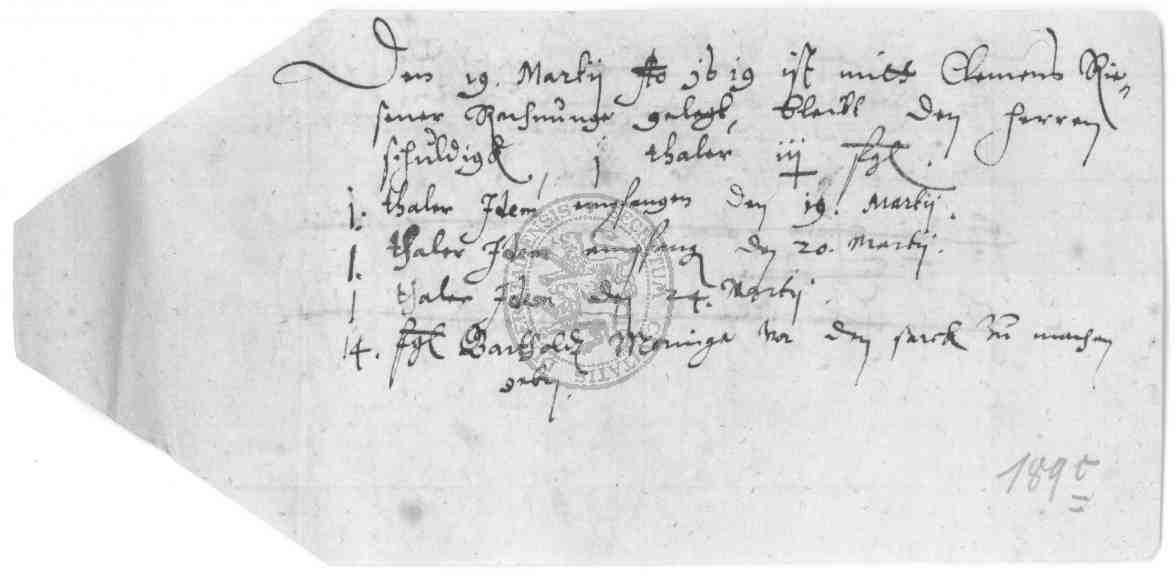 Den 19. Martij Ao 1619 ist mitt Clemens Rie-
sener Rechnunge gelegt, bleibt den herren
schuldigk, j thaler iij fgl.
1. thaler Idem empfangen den 19. Martij.
1. thaler Idem empfang den 20. Martij.
1 thaler Idem den 24. Martij.
4. fgl Barthold vor den sarck zu machen
geben.
1890